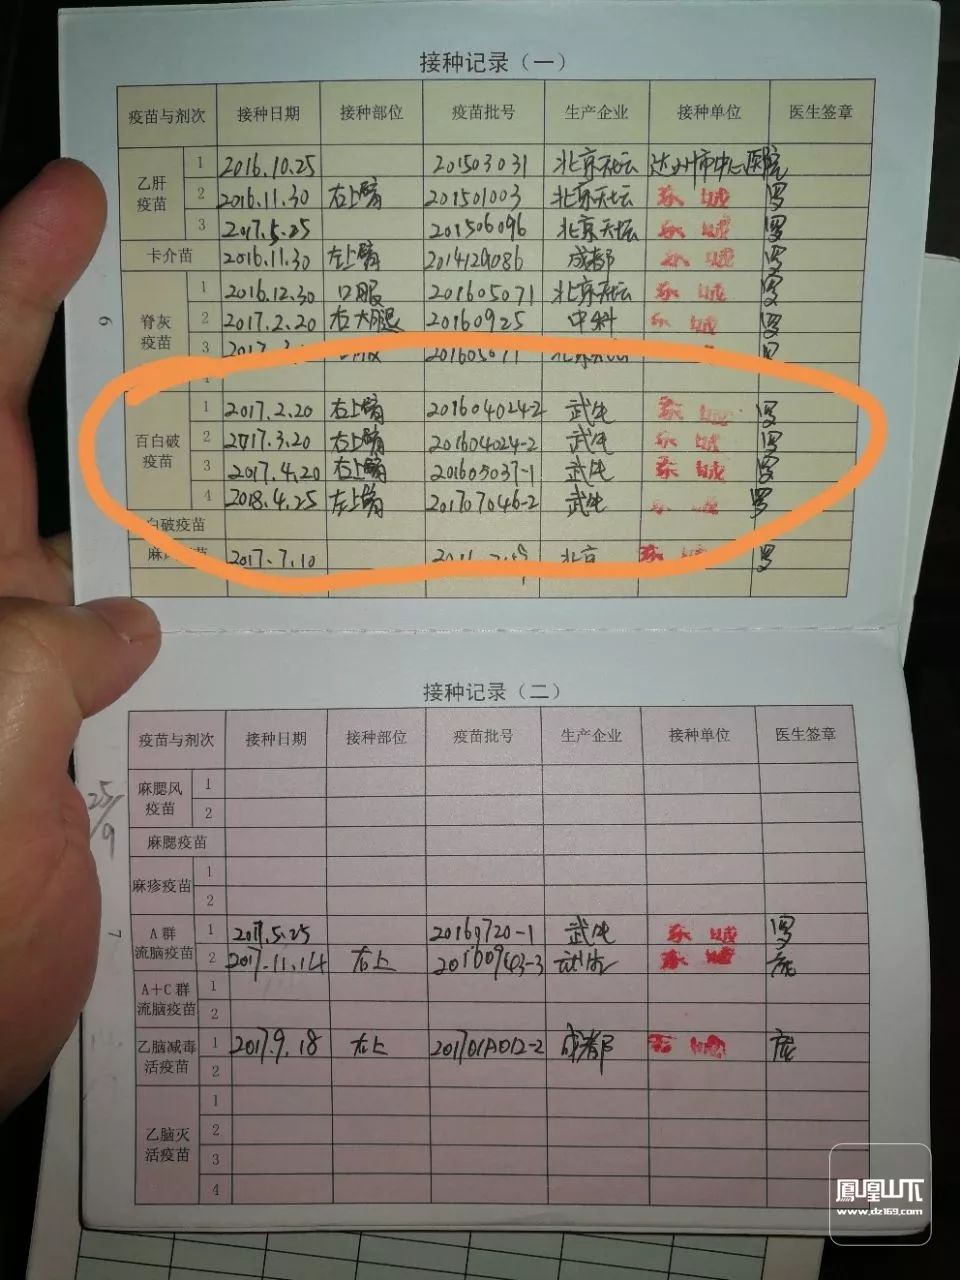 接种记录（一）
疫苗与剂次 接种日期 接种部位 疫苗批号 生产企业 接种单位 医生签章
乙肝疫苗 1 2016.10.25 201503031 北京天坛 达州市中心医院
2 2016.11.30 右上臂 201501003 北京天坛 罗
3 2017.5.25 201506096 北京天坛 罗
卡介苗 2016.11.30 左上臂 201412a086 成都 罗
脊灰疫苗 1 2016.12.30 口服 201605071 北京天坛 罗
2 2017.2.20 右大腿 20160925 中科 罗
3 罗
4
百白破疫苗 1 2017.2.20 右上臂 201604024-2 武生 罗
2 2017.3.20 右上臂 201604024-2 武生 罗
3 2017.4.20 右上臂 201605037-1 武生 罗
4 2018.4.25 左上臂 201707046-2 武生 罗
白破疫苗
2017.7.10 北京 罗
6
接种记录（二）
疫苗与剂次 接种日期 接种部位 疫苗批号 生产企业 接种单位 医生签章
麻腮风疫苗 1
2
麻腮疫苗
麻疹疫苗 1
2
A群流脑疫苗 1 2017.5.25 20160720-1 武生 罗
2 2017.11.14 右上 20160943-3
A+C群流脑疫苗 1
2
乙脑减毒活疫苗 1 2017.9.18 右上 201701A012-2 成都
2
乙脑灭活疫苗 1
2
3
4
25/9
7
鳳凰山下
www.dz169.com